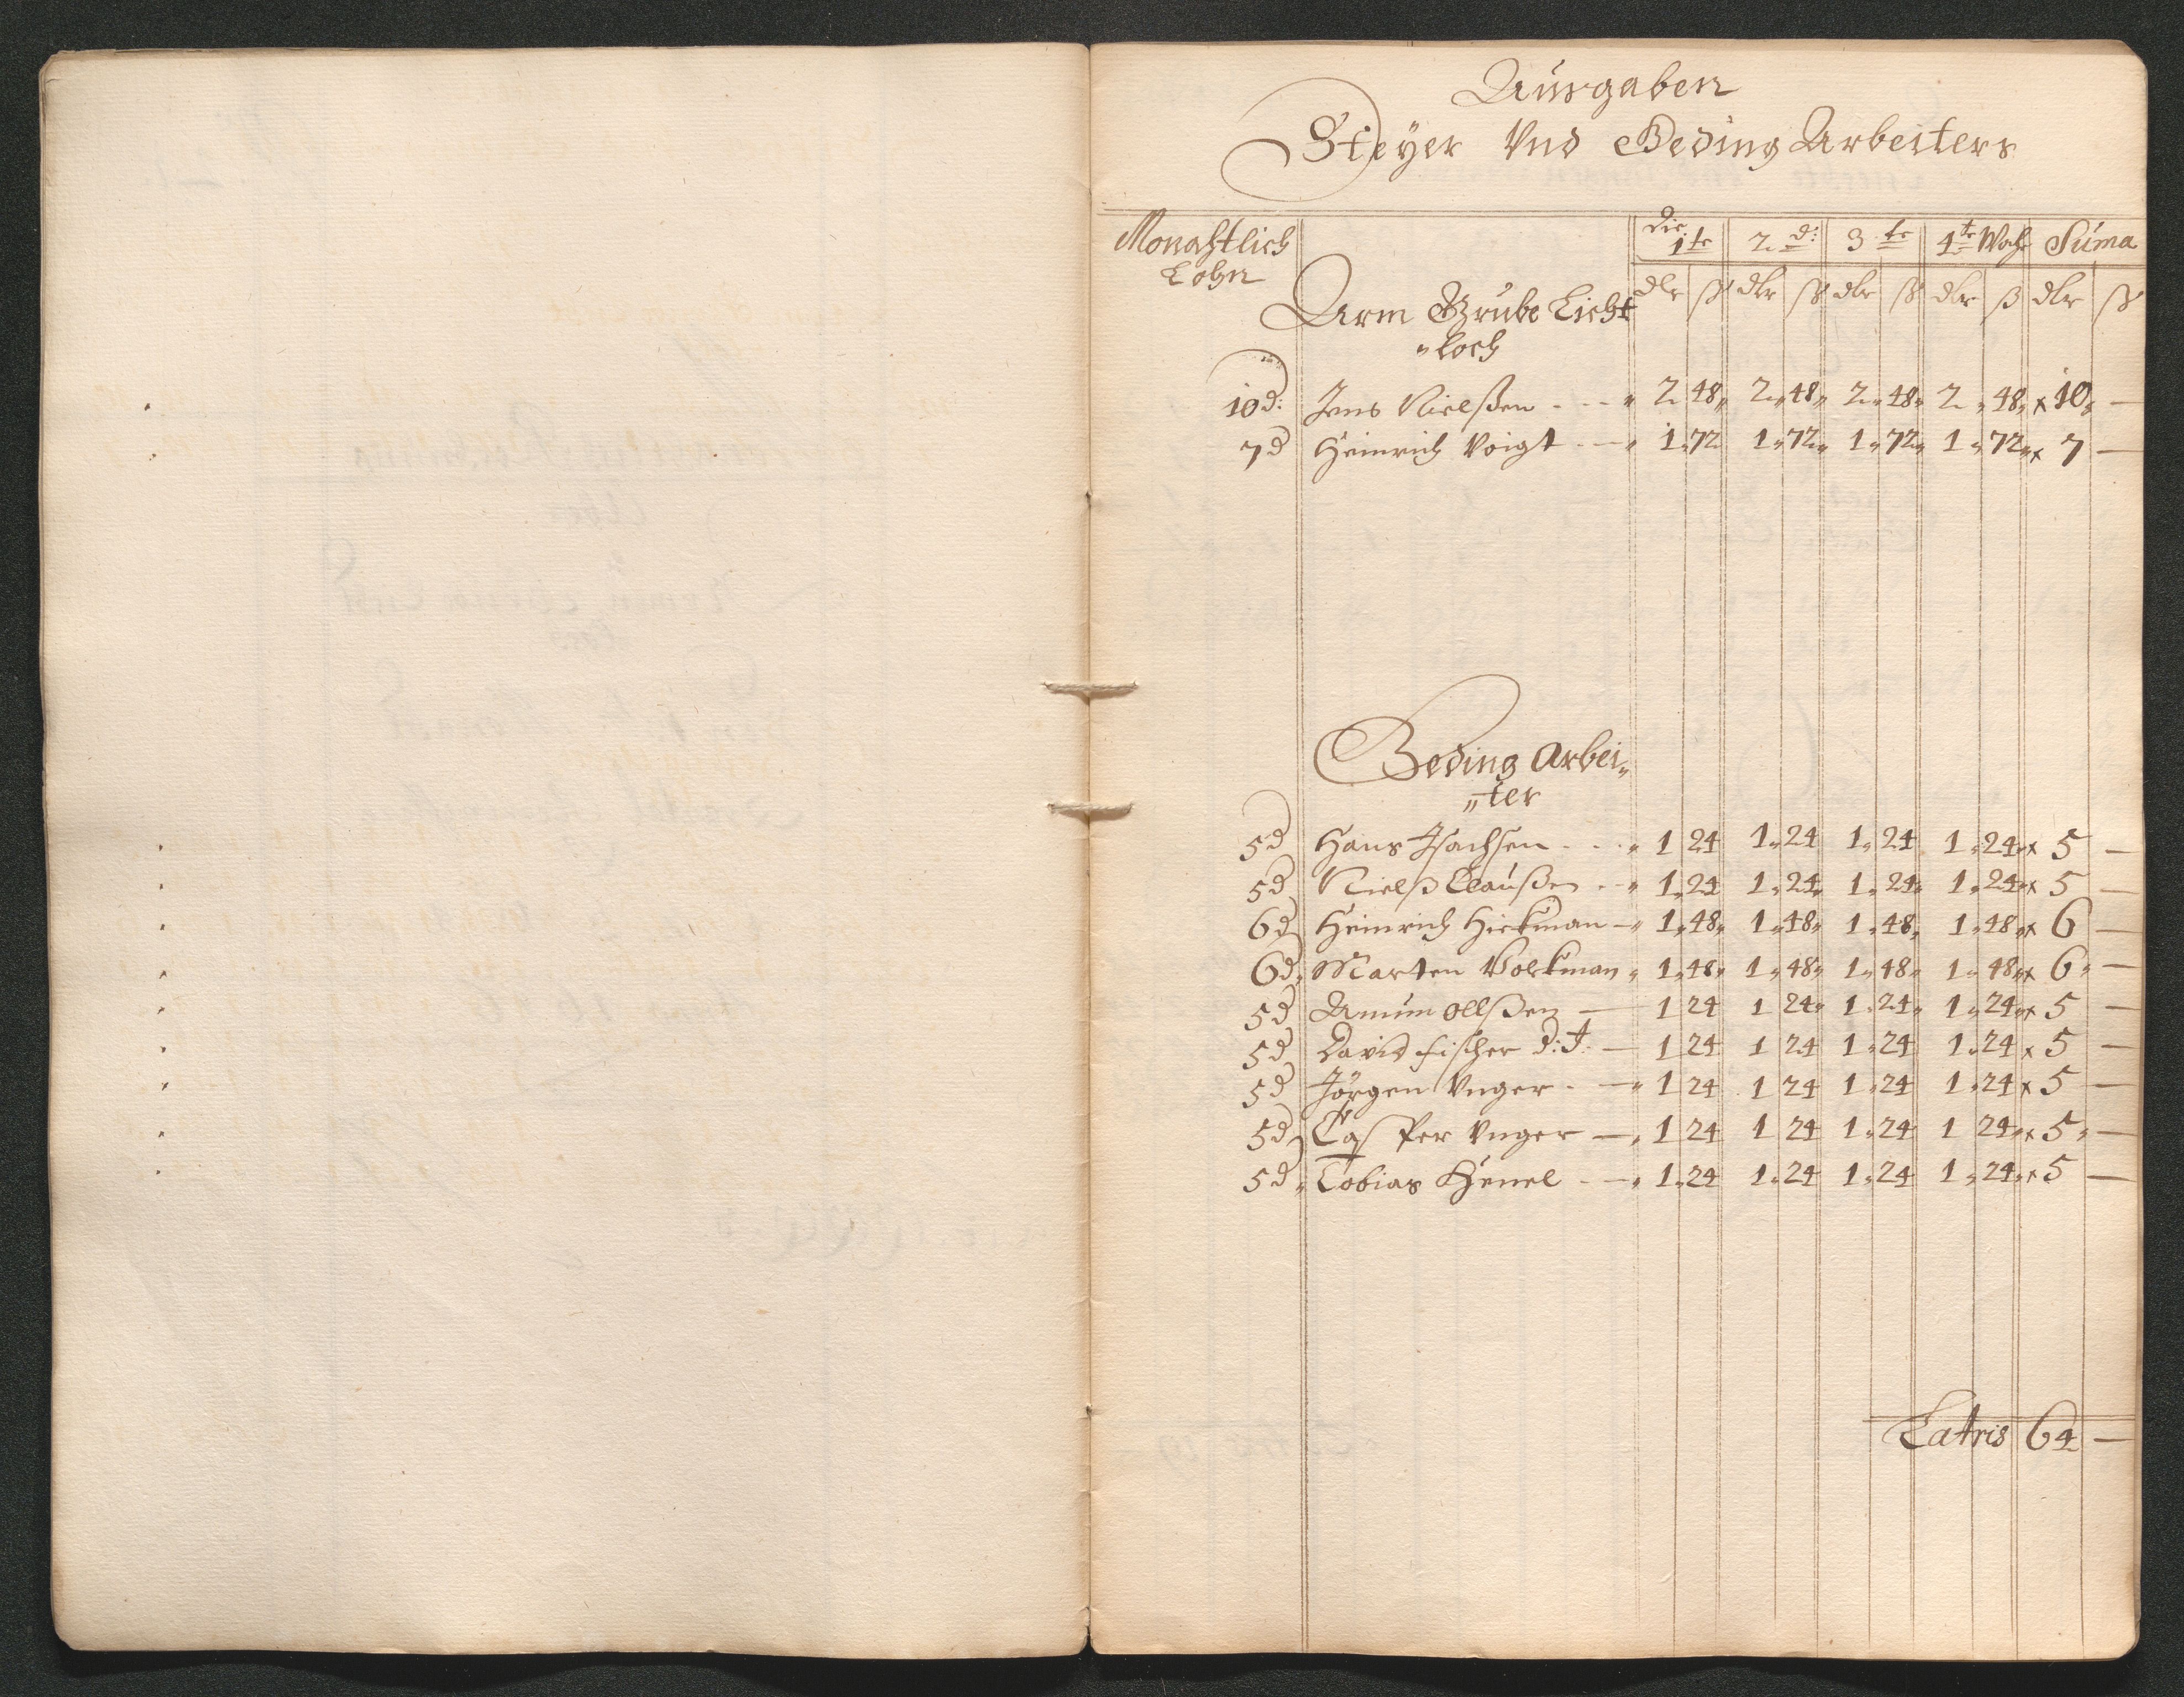 Ausgaben
Steyer Vnd Beding Arbeiters
Monahtlich Lohn die 1te 2 d: 3 te 4te Woch Suma
dlr ß dlr ß dlr ß dlr ß dlr ß
Arm Grube Licht
„loch
10 d: Jens Nielßen - - - „ 2 48„ 2„48„ 2„48„ 2„48„ x 10„ —
7 d Heinrich Voigt - — „ 1„72 1„72„ 1„72„ 1„72„ x 7 —
Beding Arbei„
„ter
5 d Hans Isachsen - - - „ 1 24 1„24 1„24 1„24„ x 5 —
5 d Nielß Claußen - - „ 1„24 1„24„ 1„24„ 1„24„ x 5 —
6 d Heinrich Hickman — „ 1„48„ 1„48„ 1„48„ 1„48„ x 6 —
6 d„ Marten Volckman „ 1„48„ 1„48„ 1„48„ 1„48„ x 6„ —
5 d Amun ollßen — 1 24 1 24„ 1„24„ 1„24„ x 5 —
5 d David fischer d: J: — 1 24 1 24 1„24 1„24 x 5 —
5 d Jörgen Vnger - — „ 1 24 1 24 1„24 1„24 x 5 —
5 d Casper Vnger — „ 1 24 1 24 1„24 1 24„ x 5„ —
5 d„ Tobias Henel - — „ 1„24 1„24 1„24 1„24„ x 5 —
Latris 64 —